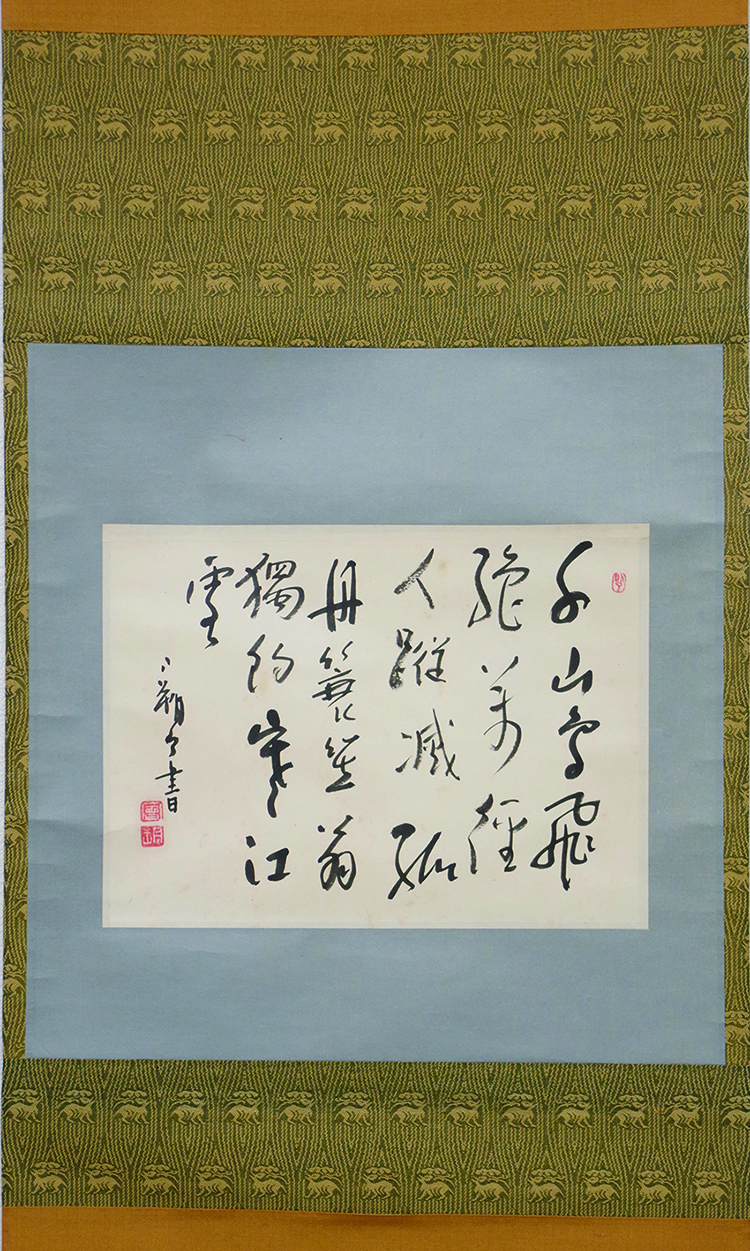 千山鳥飛
絶萬徑
人蹤滅孤
舟簑笠翁
獨釣寒江
雪
書